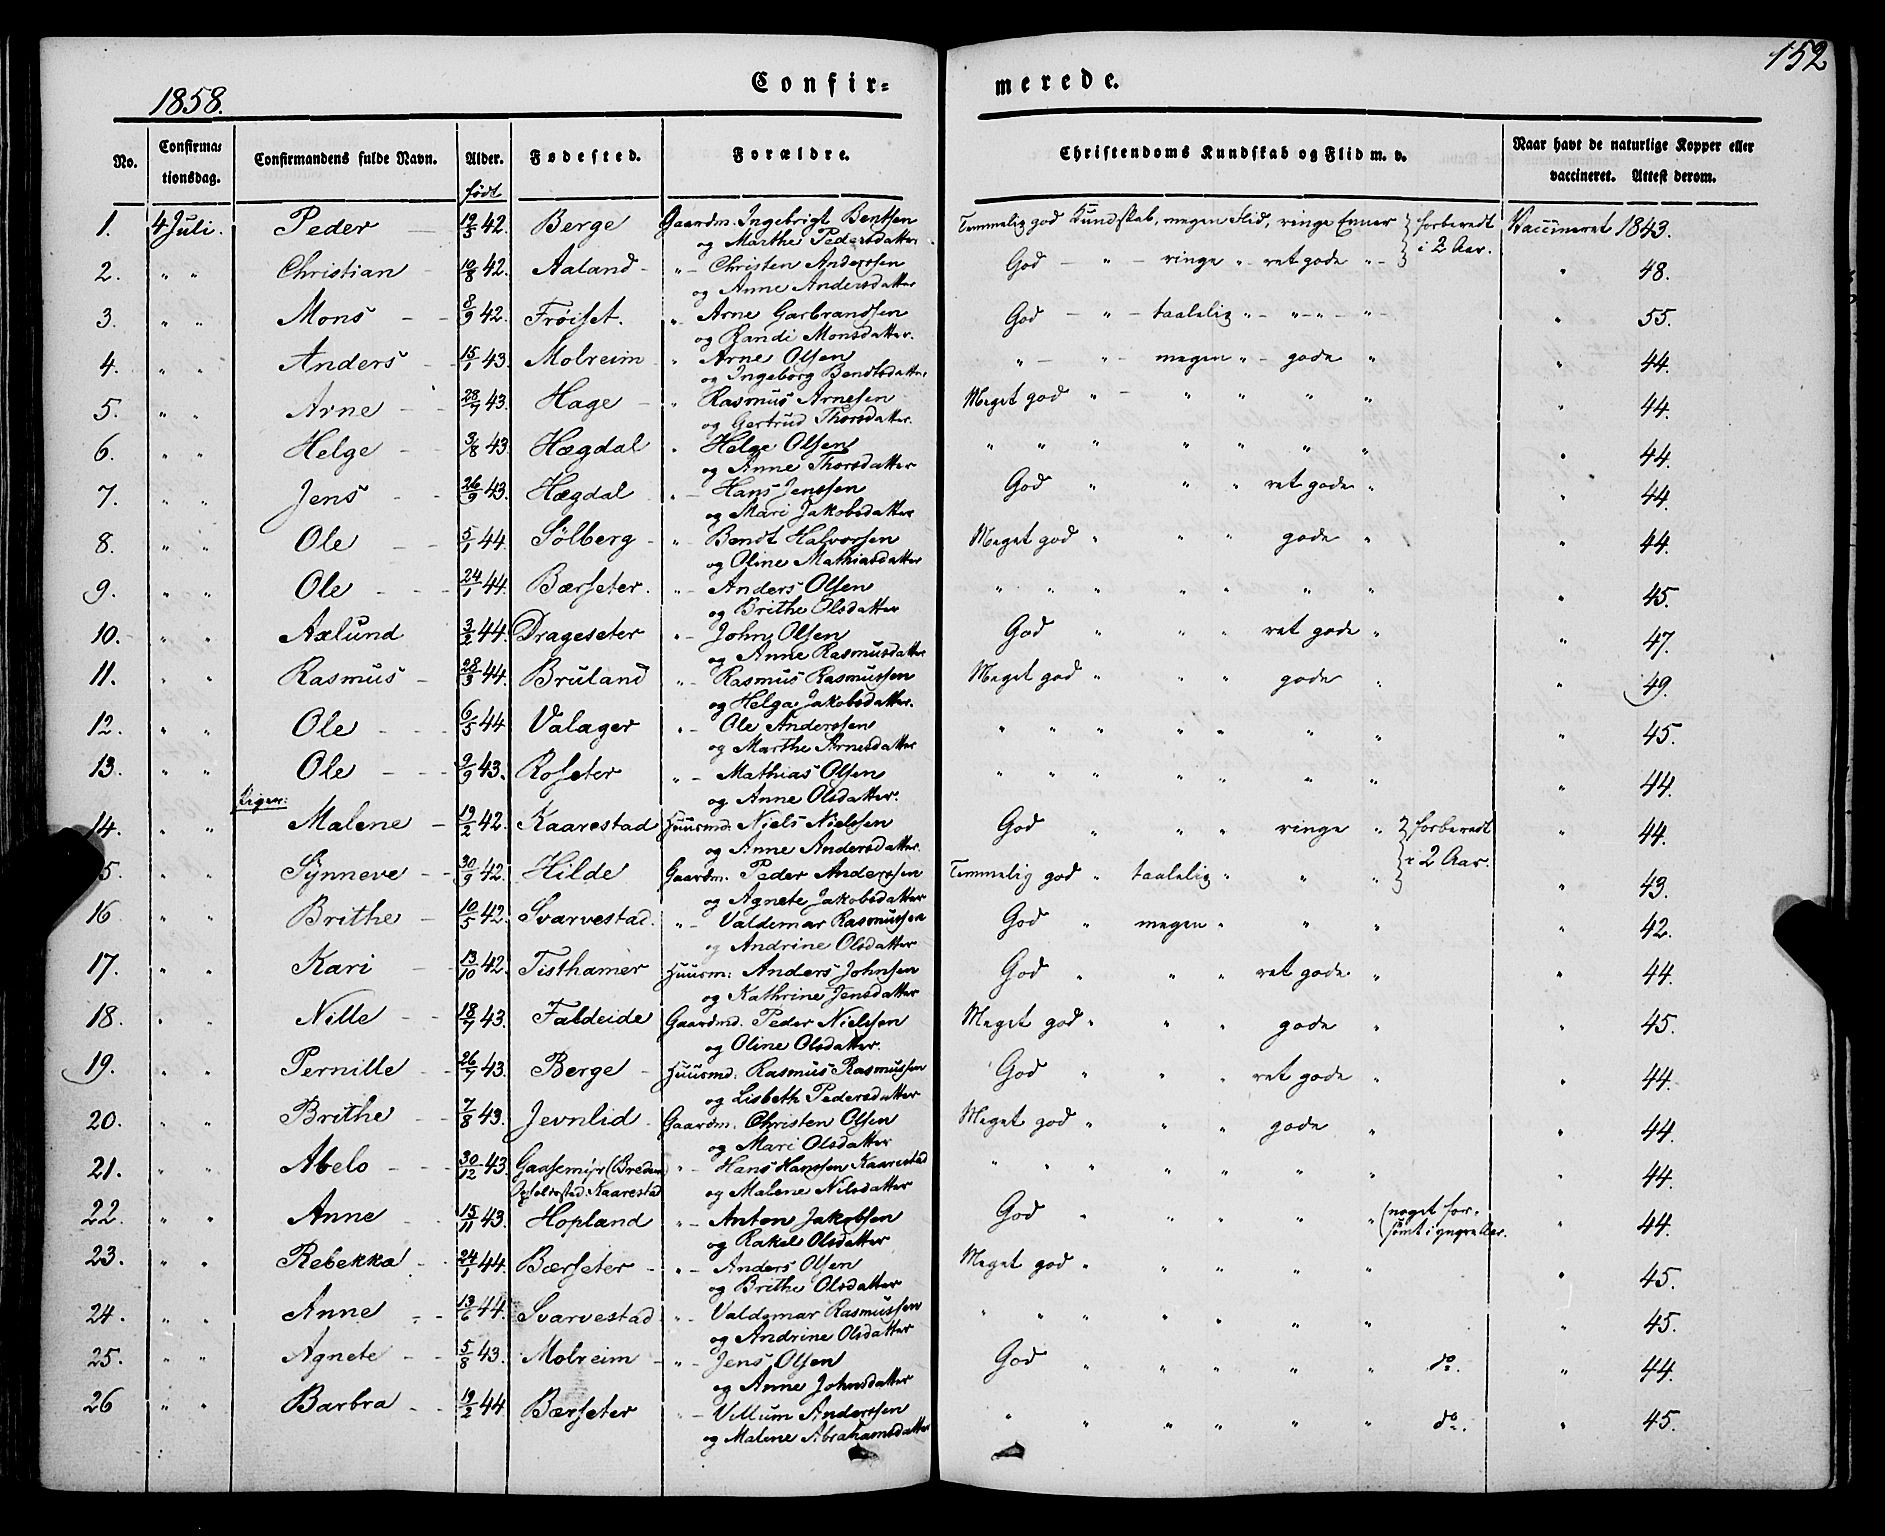 152
1858.
Confir=
merede.
No. Confirma= tionsdag. Confirmandens fulde Navn. Alder. født Fødested. Forældre. Christendoms Kundskab og Flid m. v. Naar havt de naturlige Kopper eller vaccineret. Attest derom.
1. 4 Juli. Peder — 12/3 42. Berge Gaardm. Ingebrigt Bentsen Temmelig god Kundskab, megen Flid, ringe Evner } forberedt Vaccineret 1843.
og Marthe Pedersdatter i 2 Aar.
2. " " Christian - 10/8 42. Aaland - " - Christen Anderssen God - " - ringe " ret gode " - " 48.
og Anne Andersdatter
3. " " Mons - - 8/9 42. Frøiset. " Arne Garbrandsen God - " - taalelig " - " - " - " - " 55.
og Randi Monsdatter.
4. " " Anders - 15/1 43. Molreim " Arne Olsen " - " - megen " - gode " " 44.
og Ingeborg Bendtsdatter
5. " " Arne - - 28/7 43. Hage - " Rasmus Arnesen Meget god " - " " " " " 44.
og Gertrud Thorsdatter.
6. " " Helge - - 3/8 43. Hægdal " Helge Olsen " " " " " " " " 44.
og Anne Thorsdatter
7. " " Jens - - 26/9 43. Hægdal " - Hans Jenssen God " " " ret gode " " 44.
og Mari Jakobsdatter
8. " " Ole - - 5/1 44. Sølberg - " - Bendt Halvorsen Meget god " " " gode " " 44.
og Oline Mathiasdatter
9. " " Ole - - - 24/1 44. Bærseter. " - Anders Olsen " " " " " " " " 45.
og Brithe Olsdatter
10. " " Axlund 3/2 44. Drageseter " - John Olsen God " " " ret gode " " 47.
og Anne Rasmusdatter
11. " " Rasmus - 28/3 44. Bruland " - Rasmus Rasmussen Meget god " " " gode " " 49.
og Helga Jakobsdatter.
12. " " Ole - - - 6/5 44 Valager " - Ole Anderssen " " " " " " " " 45.
og Marthe Arnesdatter
13. " " Ole - - - 2/9 43. Roseter " - Mathias Olsen " " " " " " " " 44.
og Anne Olsdatter.
Piger:
14. " " Malene - 19/2 42. Kaarestad Huusmd. Niels Nielssen God " " " ringe " } forberedt " 44.
og Anne Andersdatter. i 2 Aar.
5. " " Synneve - - 30/9 42. Hilde Gaardm. Peder Anderssen Temmelig god " taalelig " " " " 43.
og Agnete Jakobsdatter
16. " " Brithe - 10/5 42. Svarvestad. " - Valdemar Rasmussen God " megen " " " " 42.
og Andrine Olsdatter
17. " " Kari - 13/10 42. Tisthamer Huusm: Anders Johnsen God " " " ret gode " " 44.
og Kathrine Jensdatter
18. " " Nille - - 18/7 43. Faldeide Gaardmd. Peder Nielssen Meget god " " " gode " " 45.
og Oline Olsdatter.
19. " " Pernille - - 26/7 43. Berge - Huusmd: Rasmus Rasmussen God " " " ret gode " " 44.
og Lisbeth Pedersdatter
20. " " Brithe - - 7/8 43. Jevnlid. Gaardm. Christen Olsen Meget god " " " gode " " 44.
og Mari Olsdatter
21. " " Abelo - - - 30/12 43. Gaasemyr " - Hans Hanssen Kaarestad " " " " " " " 44.
Kaarestad og Malene Nilsdatter
22. " " Anne - 15/11 43. Hopland " - Anton Jakobsen God " " " " " (noget for= " 44.
og Rakel Olsdatter sømt i yngre Aar.
23. " " Rebekka - - 24/1 44. Bærseter - " - Anders Olsen Meget god " " " " " " 45.
og Brithe Olsdatter
24. " " Anne - - 13/6 44. Svarvestad " - Valdemar Rasmussen " " " " " " " " 45.
og Andrine Olsdatter
25. " " Agnete - - 5/8 43. Molreim - " - Jens Olsen God " " " " " do. " 44.
og Anne Johnsdatter
26 " " Barbra - - 19/2 44. Bærseter " - Villum Anderssen " " " " " " do. " 45.
og Malene Abrahamsdatter